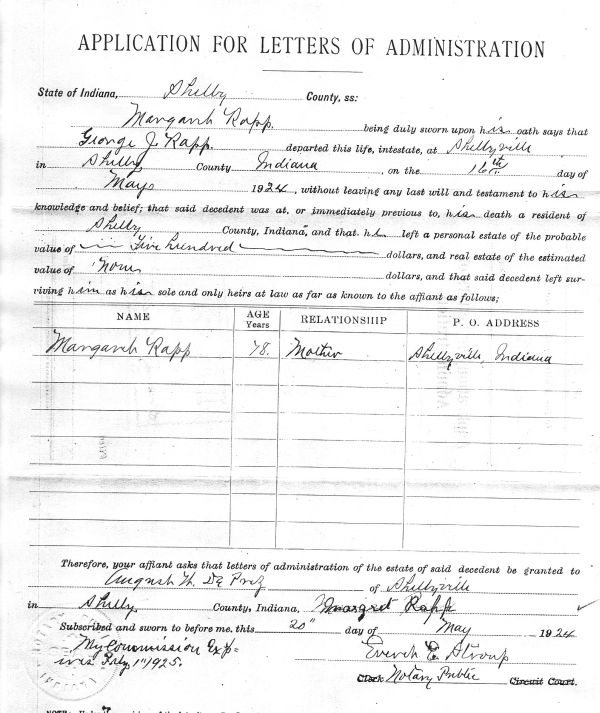 APPLICATION FOR LETTERS OF ADMINISTRATION
State of Indiana, Shelby County, ss:
Margaret Rapp. being duly sworn upon his oath says that
George J. Rapp. departed this life, intestate, at Shelbyville
in Shelby County Indiana, on the 16th day of
May 1924, without leaving any last will and testament to his
knowledge and belief; that said decedent was at, or immediately previous to, his death a resident of
Shelby County, Indiana, and that he left a personal estate of the probable
value of Five hundred dollars, and real estate of the estimated
value of None dollars, and that said decedent left sur-
viving him as his sole and only heirs at law as far as known to the affiant as follows;
NAME AGE Years RELATIONSHIP P. O. ADDRESS
Margaret Rapp 78. Mother Shelbyville, Indiana
Therefore, your affiant asks that letters of administration of the estate of said decedent be granted to
August of Shelbyville
in Shelby County, Indiana, Margret Rapp
Subscribed and sworn to before me, this 20" day of May 1924
My Commission Exp= Everett E Stroup
ires 1" 1925. Clerk Notary Public Circuit Court.